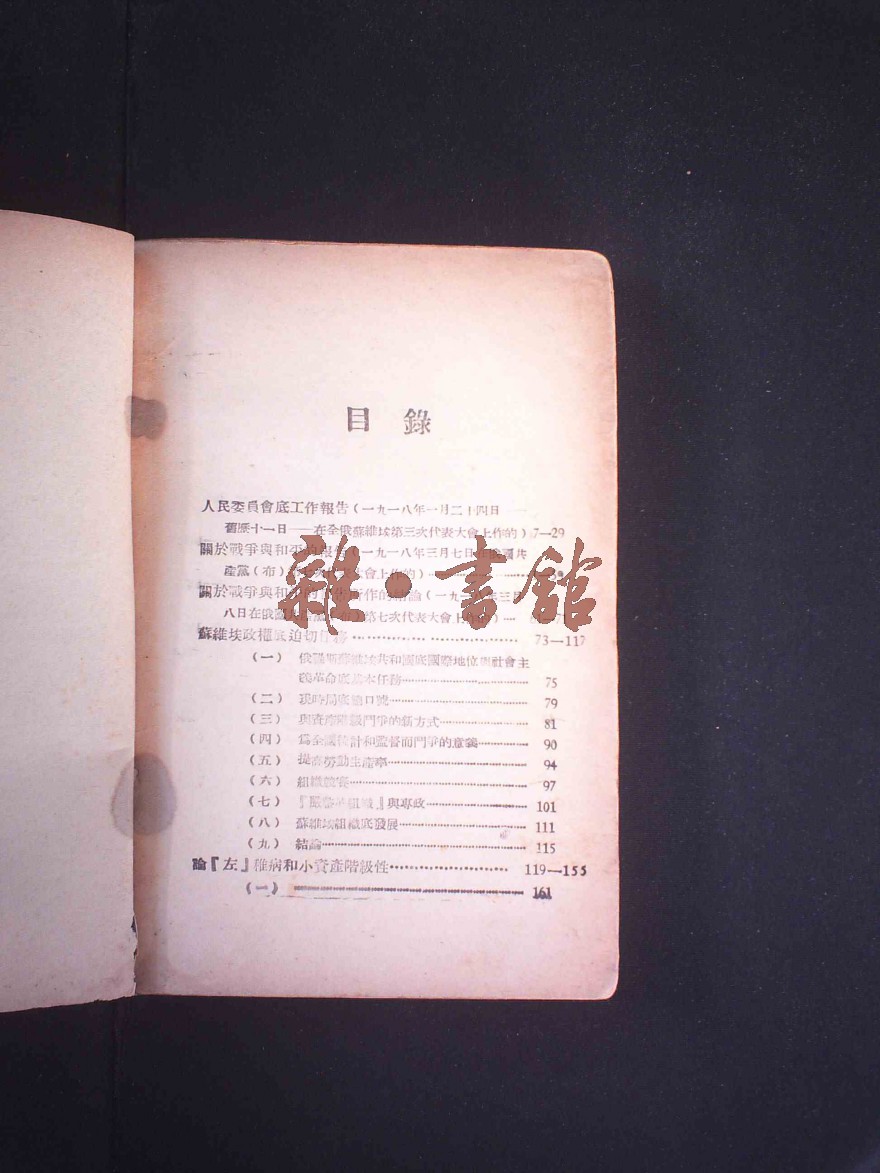 目錄
人民委員會底工作報告(一九一八年一月二十四日——
舊歷十一日——在全俄蘇維埃第三次代表大會上作的) 7—29
關於戰爭與和平的報告(一九一八年三月七日在俄國共
產黨(布)第七次代表大會上作的)
關於戰爭與和平的報告所作的結論(一九一八年三月
八日在俄國共產黨(布)第七次代表大會上作的)
雜·書館
蘇維埃政權底迫切任務 73—117
(一) 俄羅斯蘇維埃共和國底國際地位與社會主
義革命底基本任務 75
(二) 現時局底總口號 79
(三) 與資產階級鬥爭的新方式 81
(四) 為全國統計和監督而鬥爭的意義 90
(五) 提高勞動生產率 94
(六) 組織競賽 97
(七) 『嚴整的組織』與專政 101
(八) 蘇維埃組織底發展 111
(九) 結論 115
論『左』稚病和小資產階級性 119—155
(一) 161